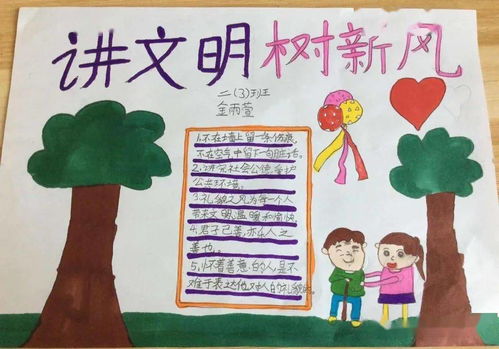 讲文明树新风
二(3)班
金雨萱
1.不在墙上留一条伤痕,
不在空气中留下一句脏话。
2.讲究社会公德,爱护
公共环境。
3.礼貌之风为每一个人
带来文明,温暖和愉快。
4.君子己善,亦乐人之
善也。
5.怀着善意的人是不
难于表达他对人的礼貌的。